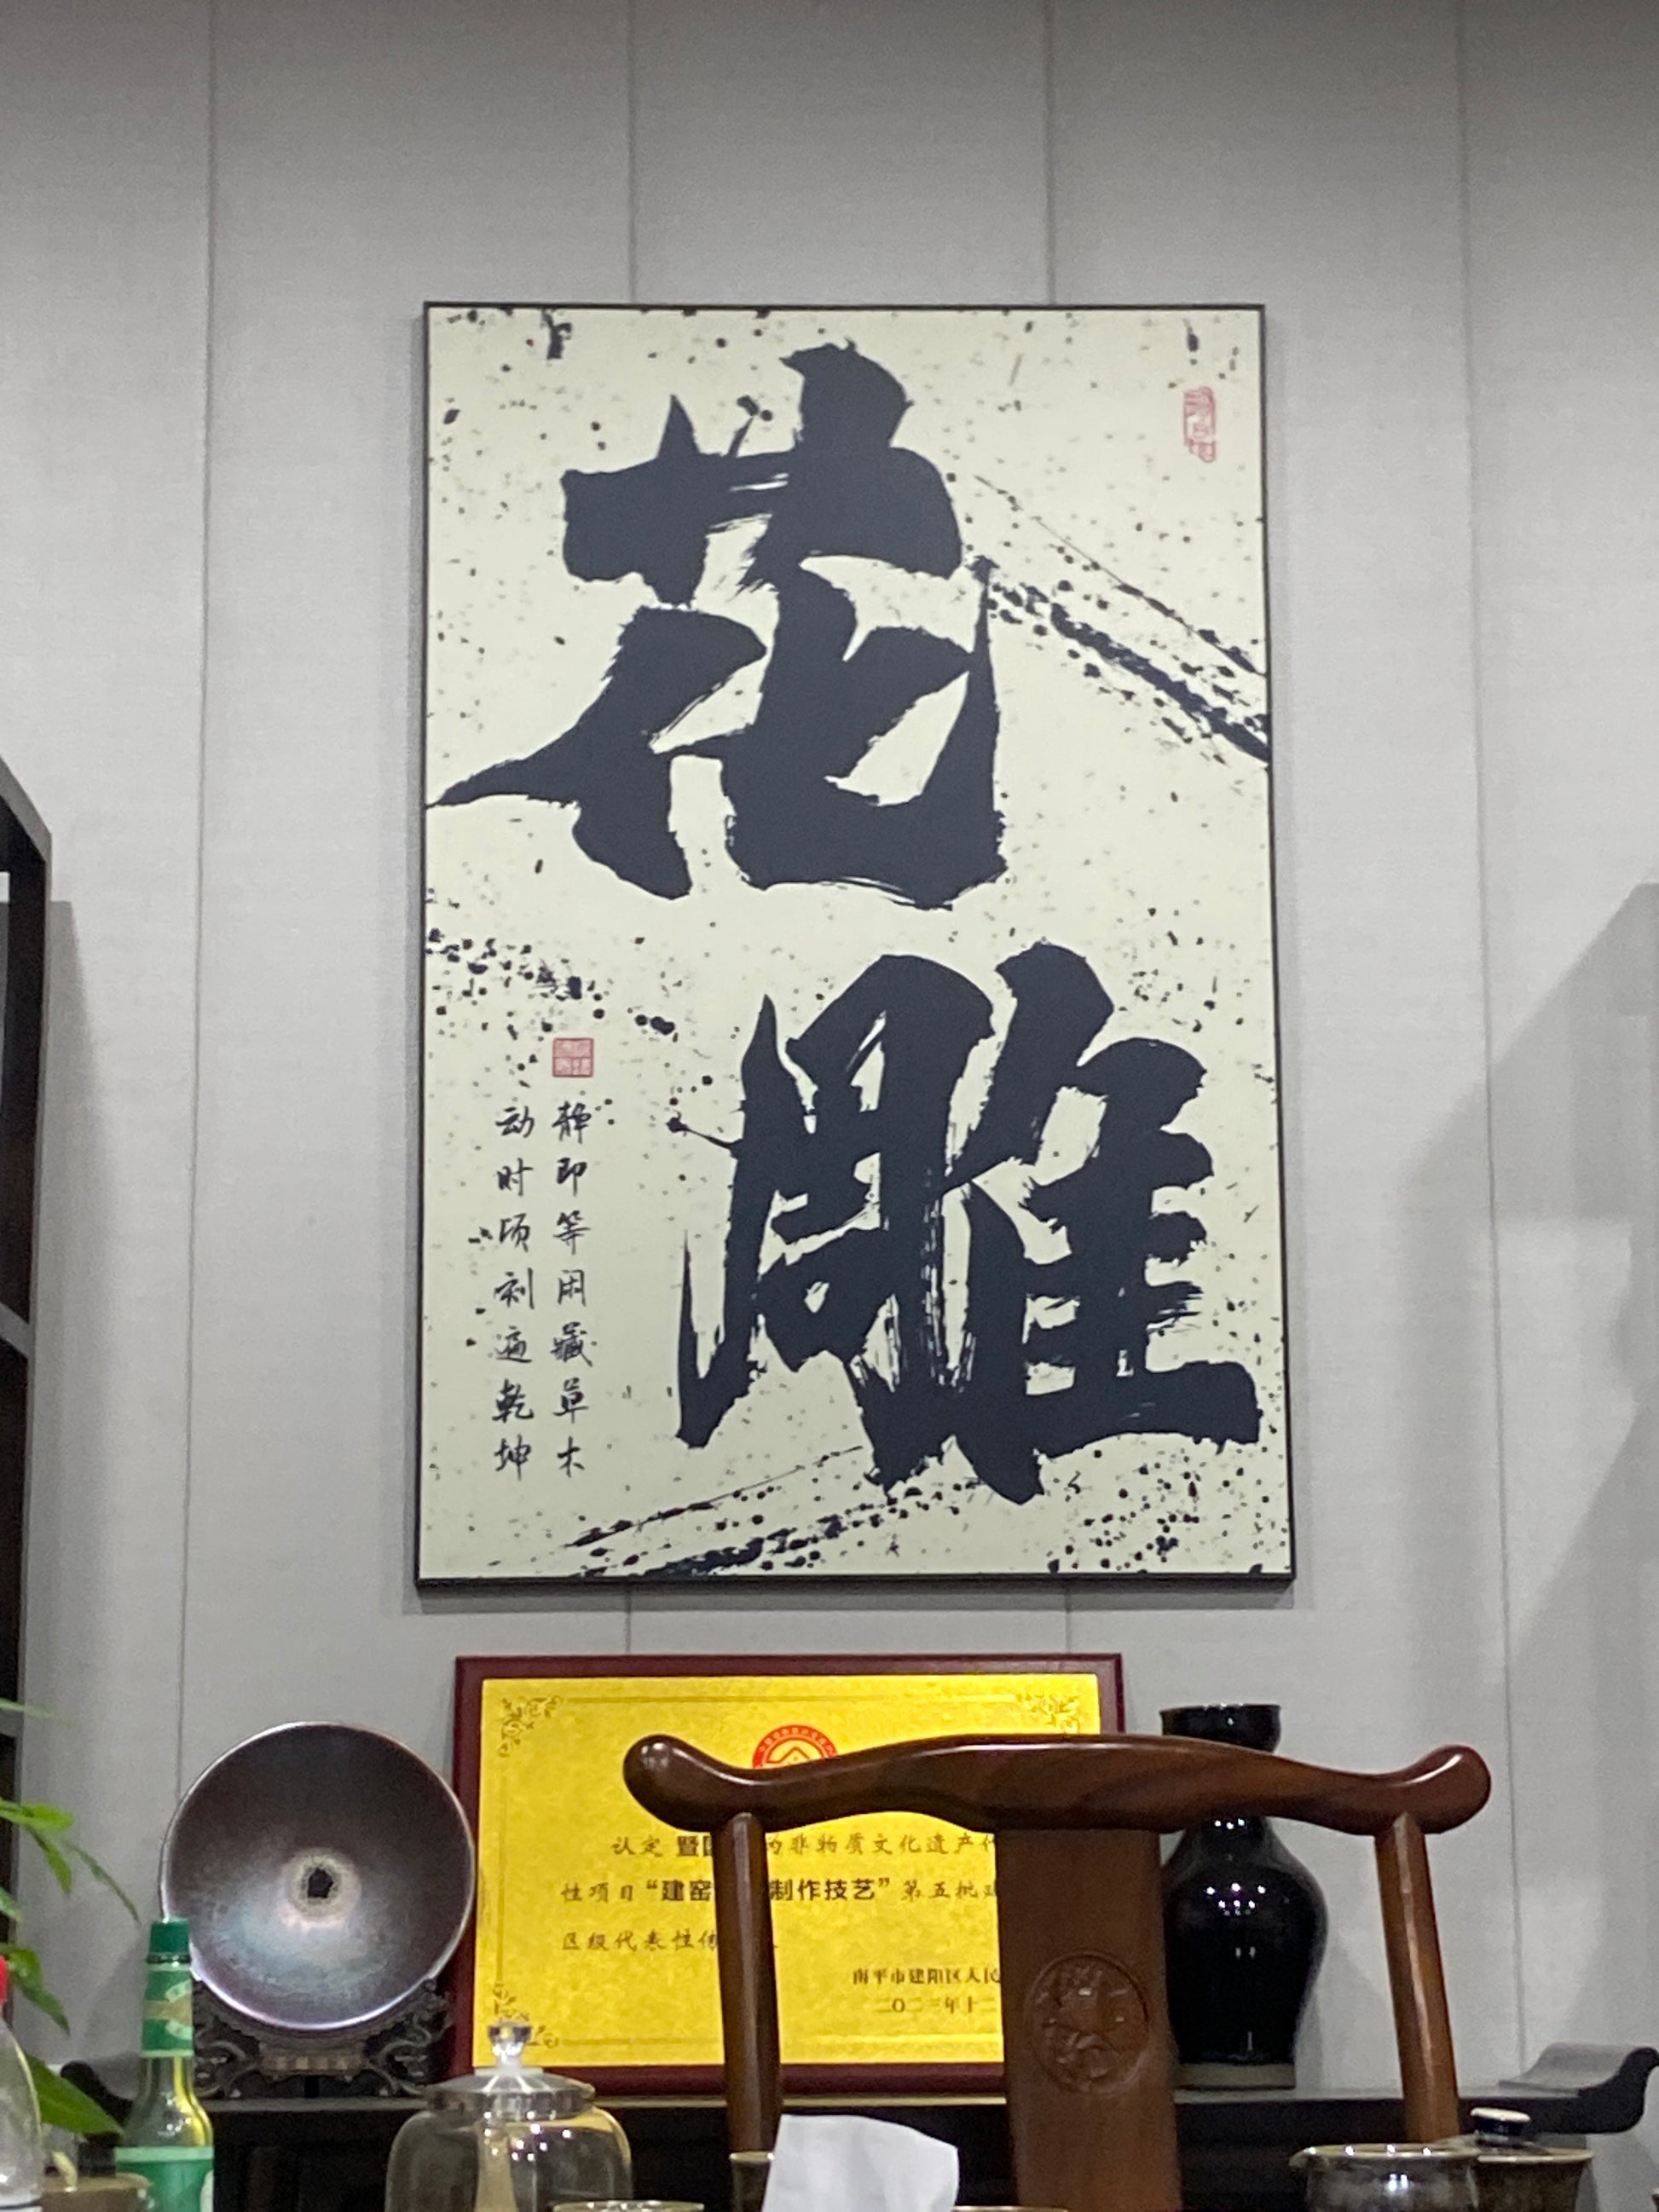 花雕
静即等闲藏草木
动时顷刻遍乾坤
认定 暨 为非物质文化遗产代
性项目“建窑 制作技艺”第五批建
区级代表性传 人
南平市建阳区人民
二〇二三年十二